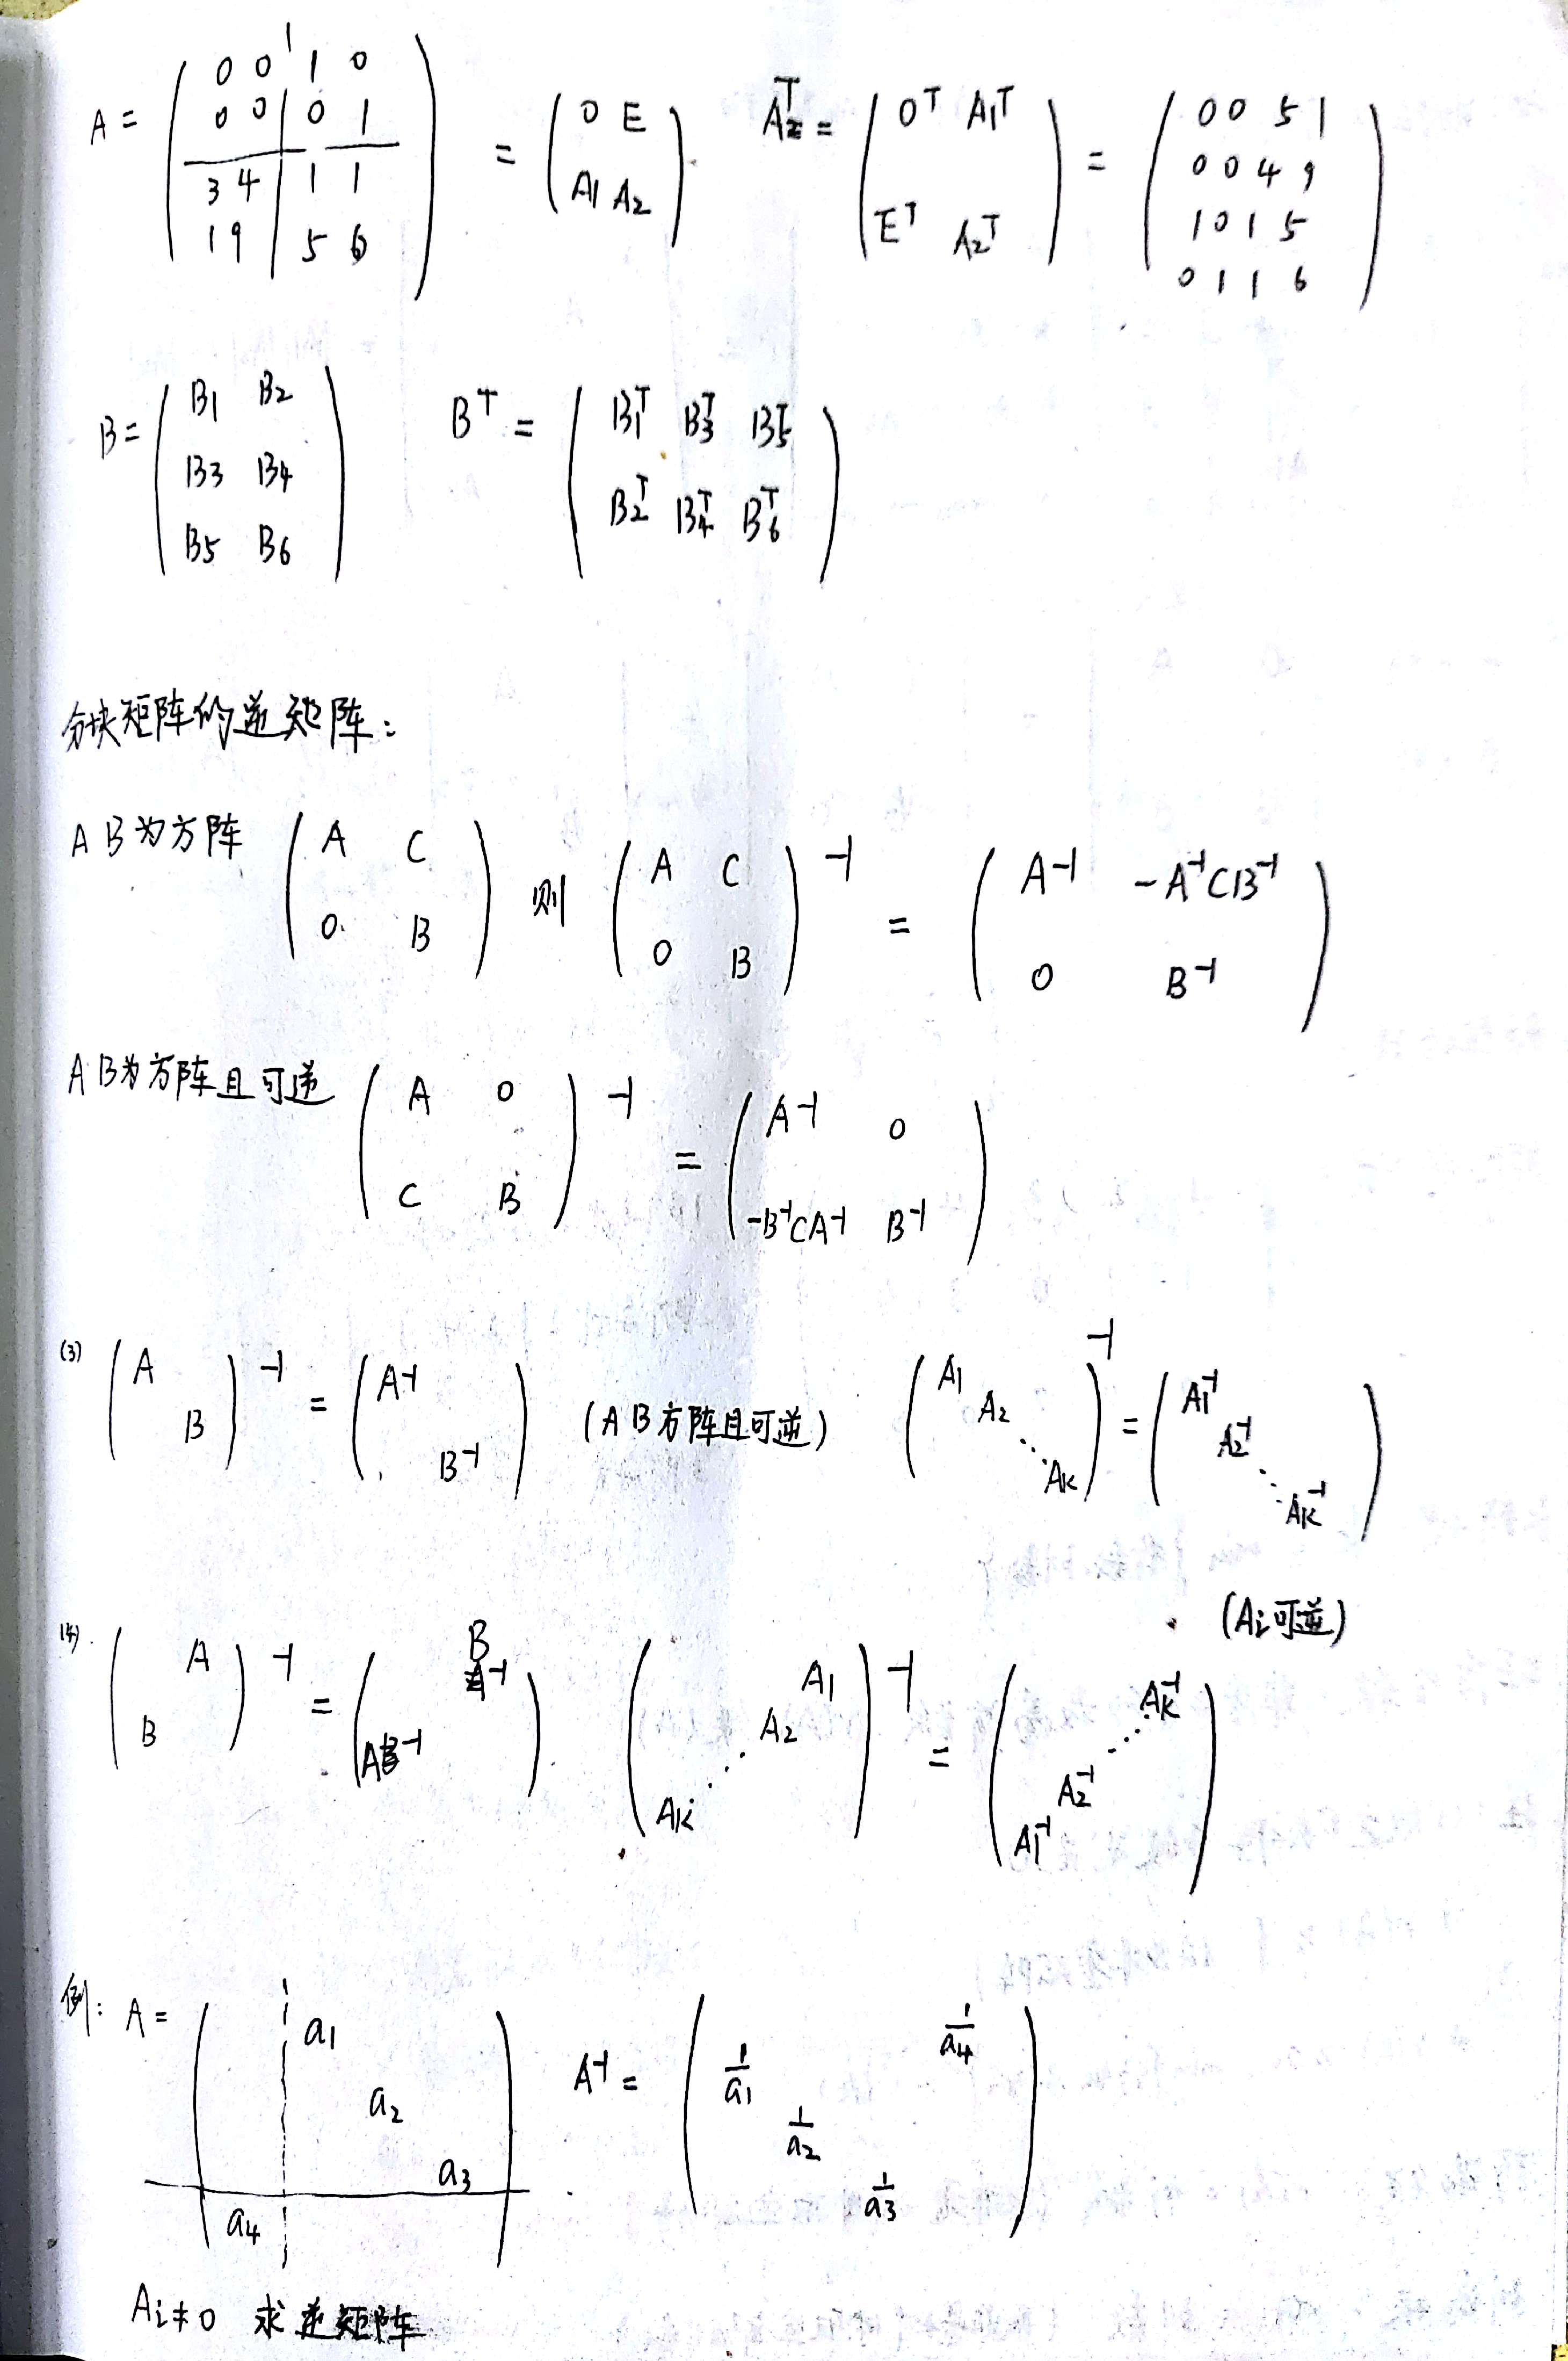 A = ( 0 0 1 0 ; 0 0 0 1 ; 3 4 1 1 ; 1 9 5 6 ) = ( 0 E ; A1 A2 ) Aᵀ = ( 0ᵀ A1ᵀ ; Eᵀ A2ᵀ ) = ( 0 0 5 1 ; 0 0 4 9 ; 1 0 1 5 ; 0 1 1 6 )
B = ( B1 B2 ; B3 B4 ; B5 B6 ) Bᵀ = ( B1ᵀ B3ᵀ B5ᵀ ; B2ᵀ B4ᵀ B6ᵀ )
分块矩阵的逆矩阵:
A B为方阵 ( A C ; 0 B ) 则 ( A C ; 0 B )⁻¹ = ( A⁻¹ -A⁻¹CB⁻¹ ; 0 B⁻¹ )
A B为方阵且可逆 ( A 0 ; C B )⁻¹ = ( A⁻¹ 0 ; -B⁻¹CA⁻¹ B⁻¹ )
(3) ( A ; B )⁻¹ = ( A⁻¹ ; B⁻¹ ) (A B方阵且可逆) ( A1 A2 ⋱ AK )⁻¹ = ( A1⁻¹ A2⁻¹ ⋱ AK⁻¹ )
(Ai可逆)
(4) ( A ; B )⁻¹ = ( B⁻¹ ; A⁻¹ ) ( A1 ; A2 ; ⋰ ; AK )⁻¹ = ( AK⁻¹ ; ⋰ ; A2⁻¹ ; A1⁻¹ )
例: A = ( a1 ; a2 ; a3 ; a4 ) A⁻¹ = ( 1/a4 ; 1/a1 ; 1/a2 ; 1/a3 )
Ai≠0 求逆矩阵